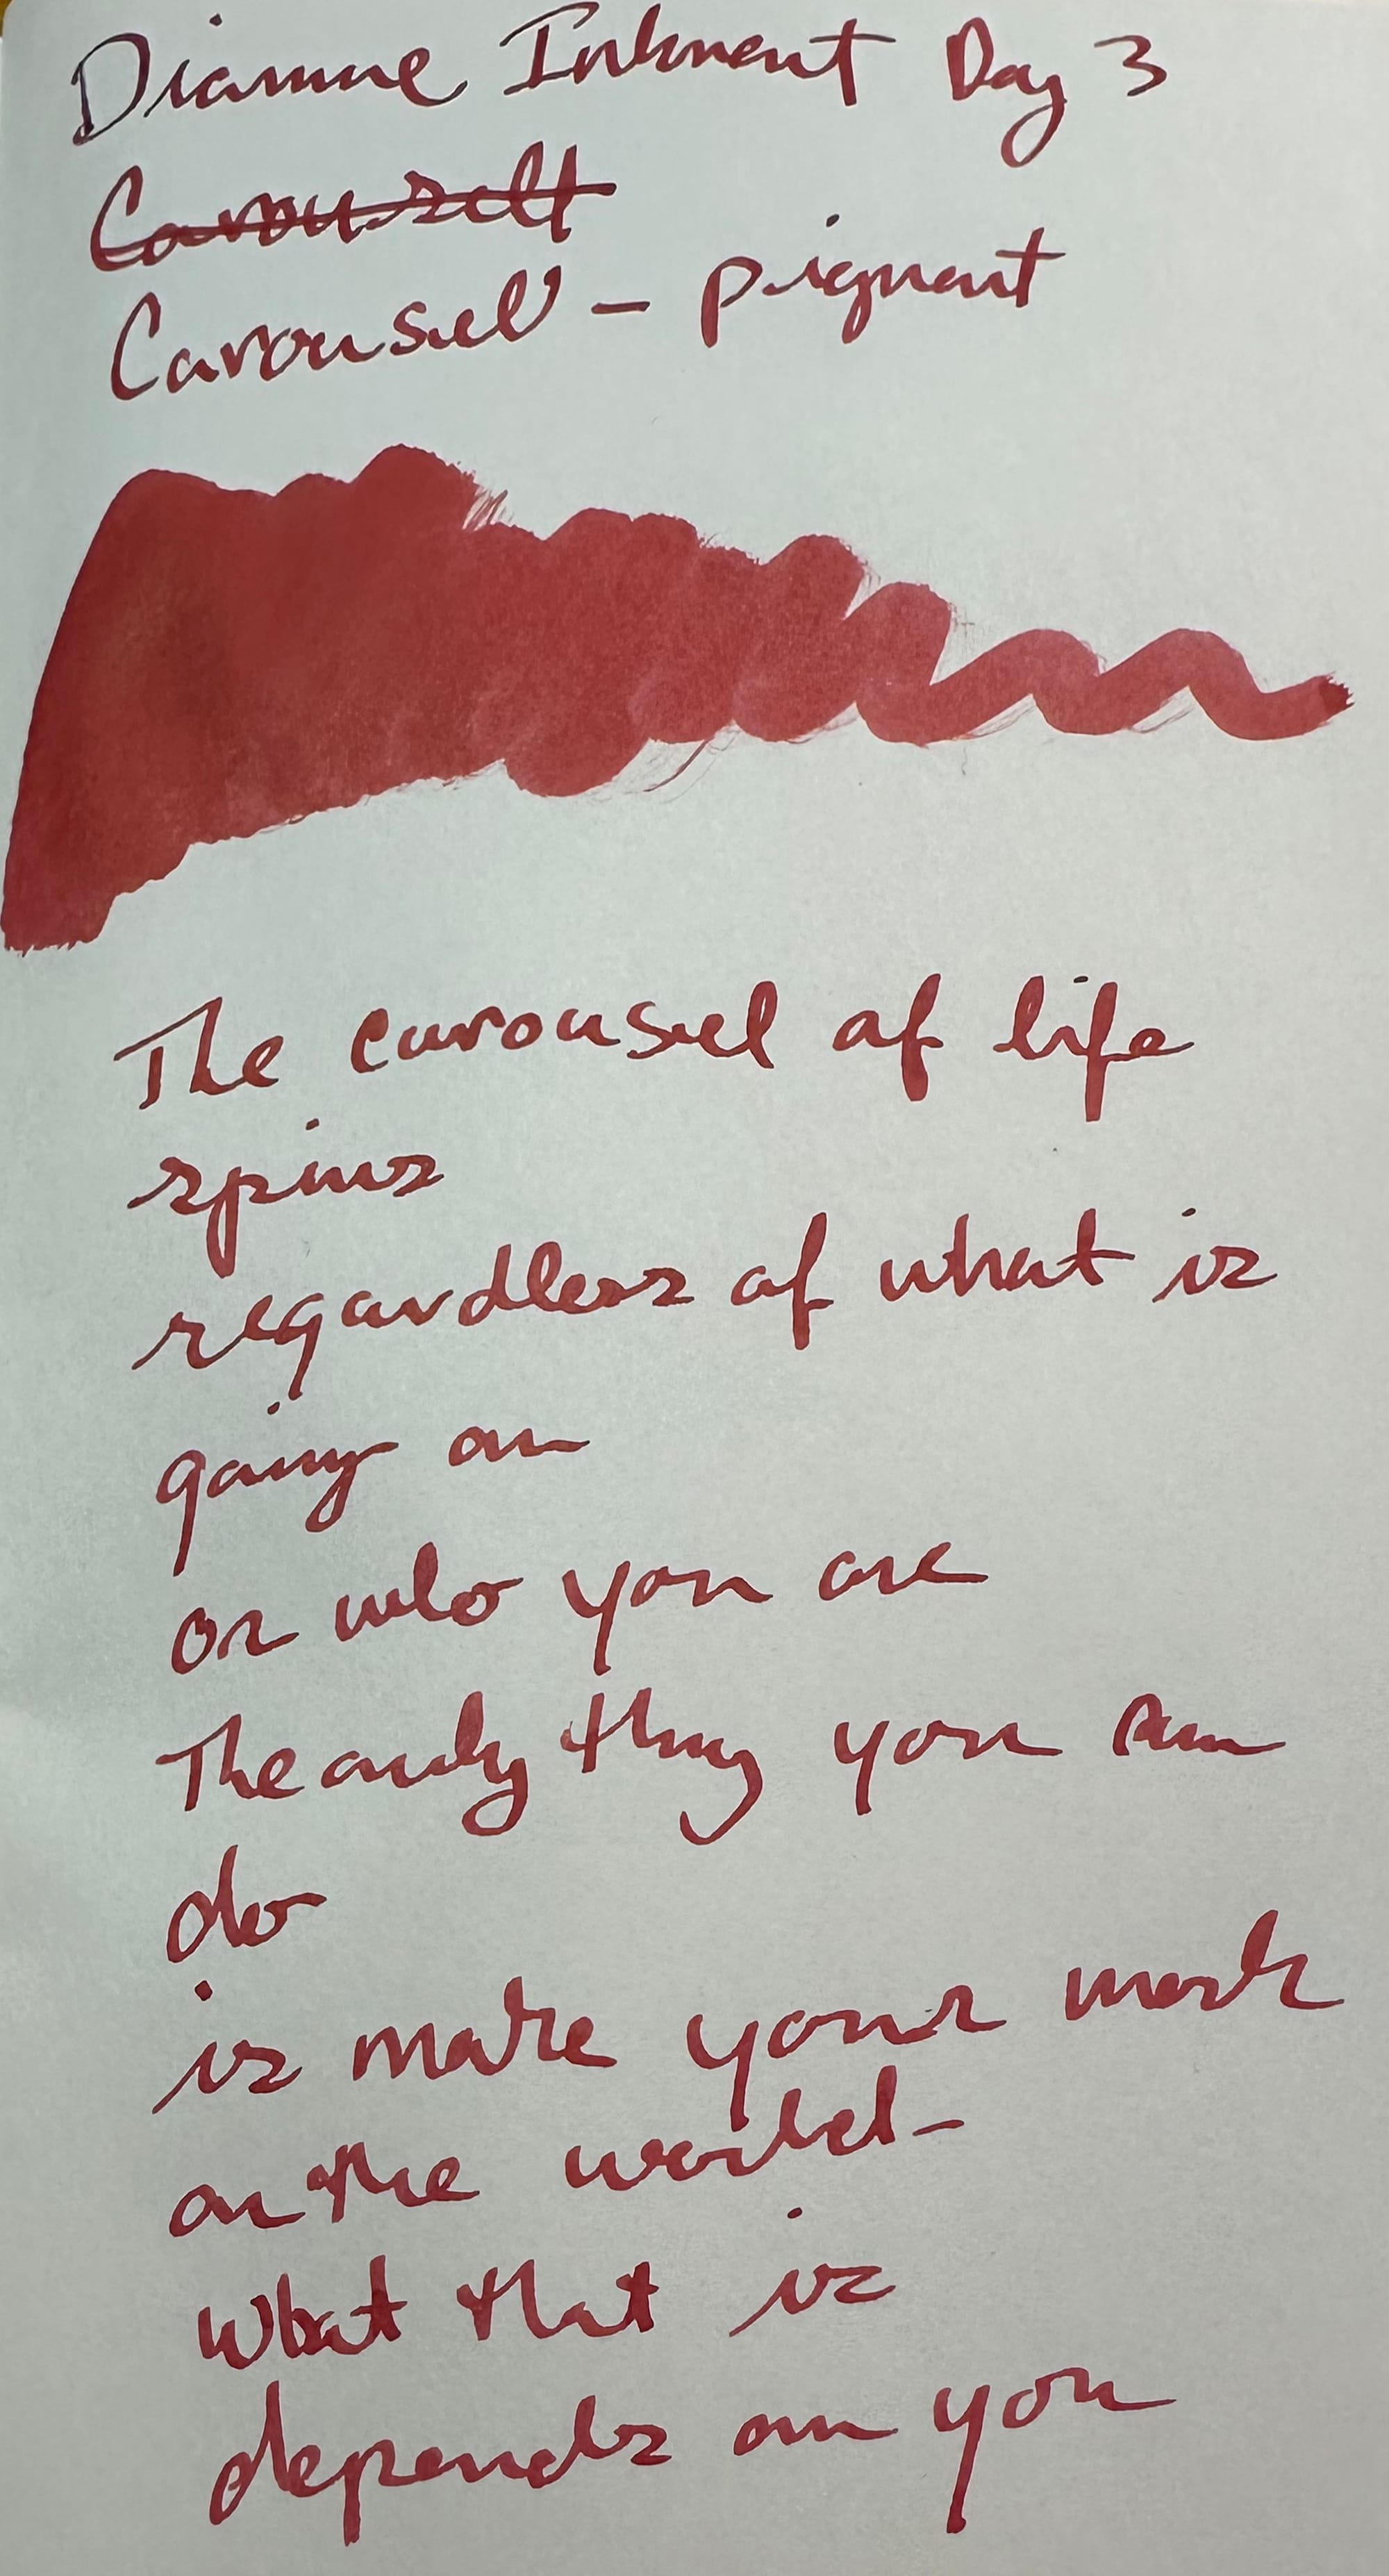 Diamine Inkvent Day 3
Carousel
Carousel - pigment
The carousel of life
spins
regardless of what is
going on
or who you are
The only thing you can
do
is make your mark
on the world-
What that is
depends on you